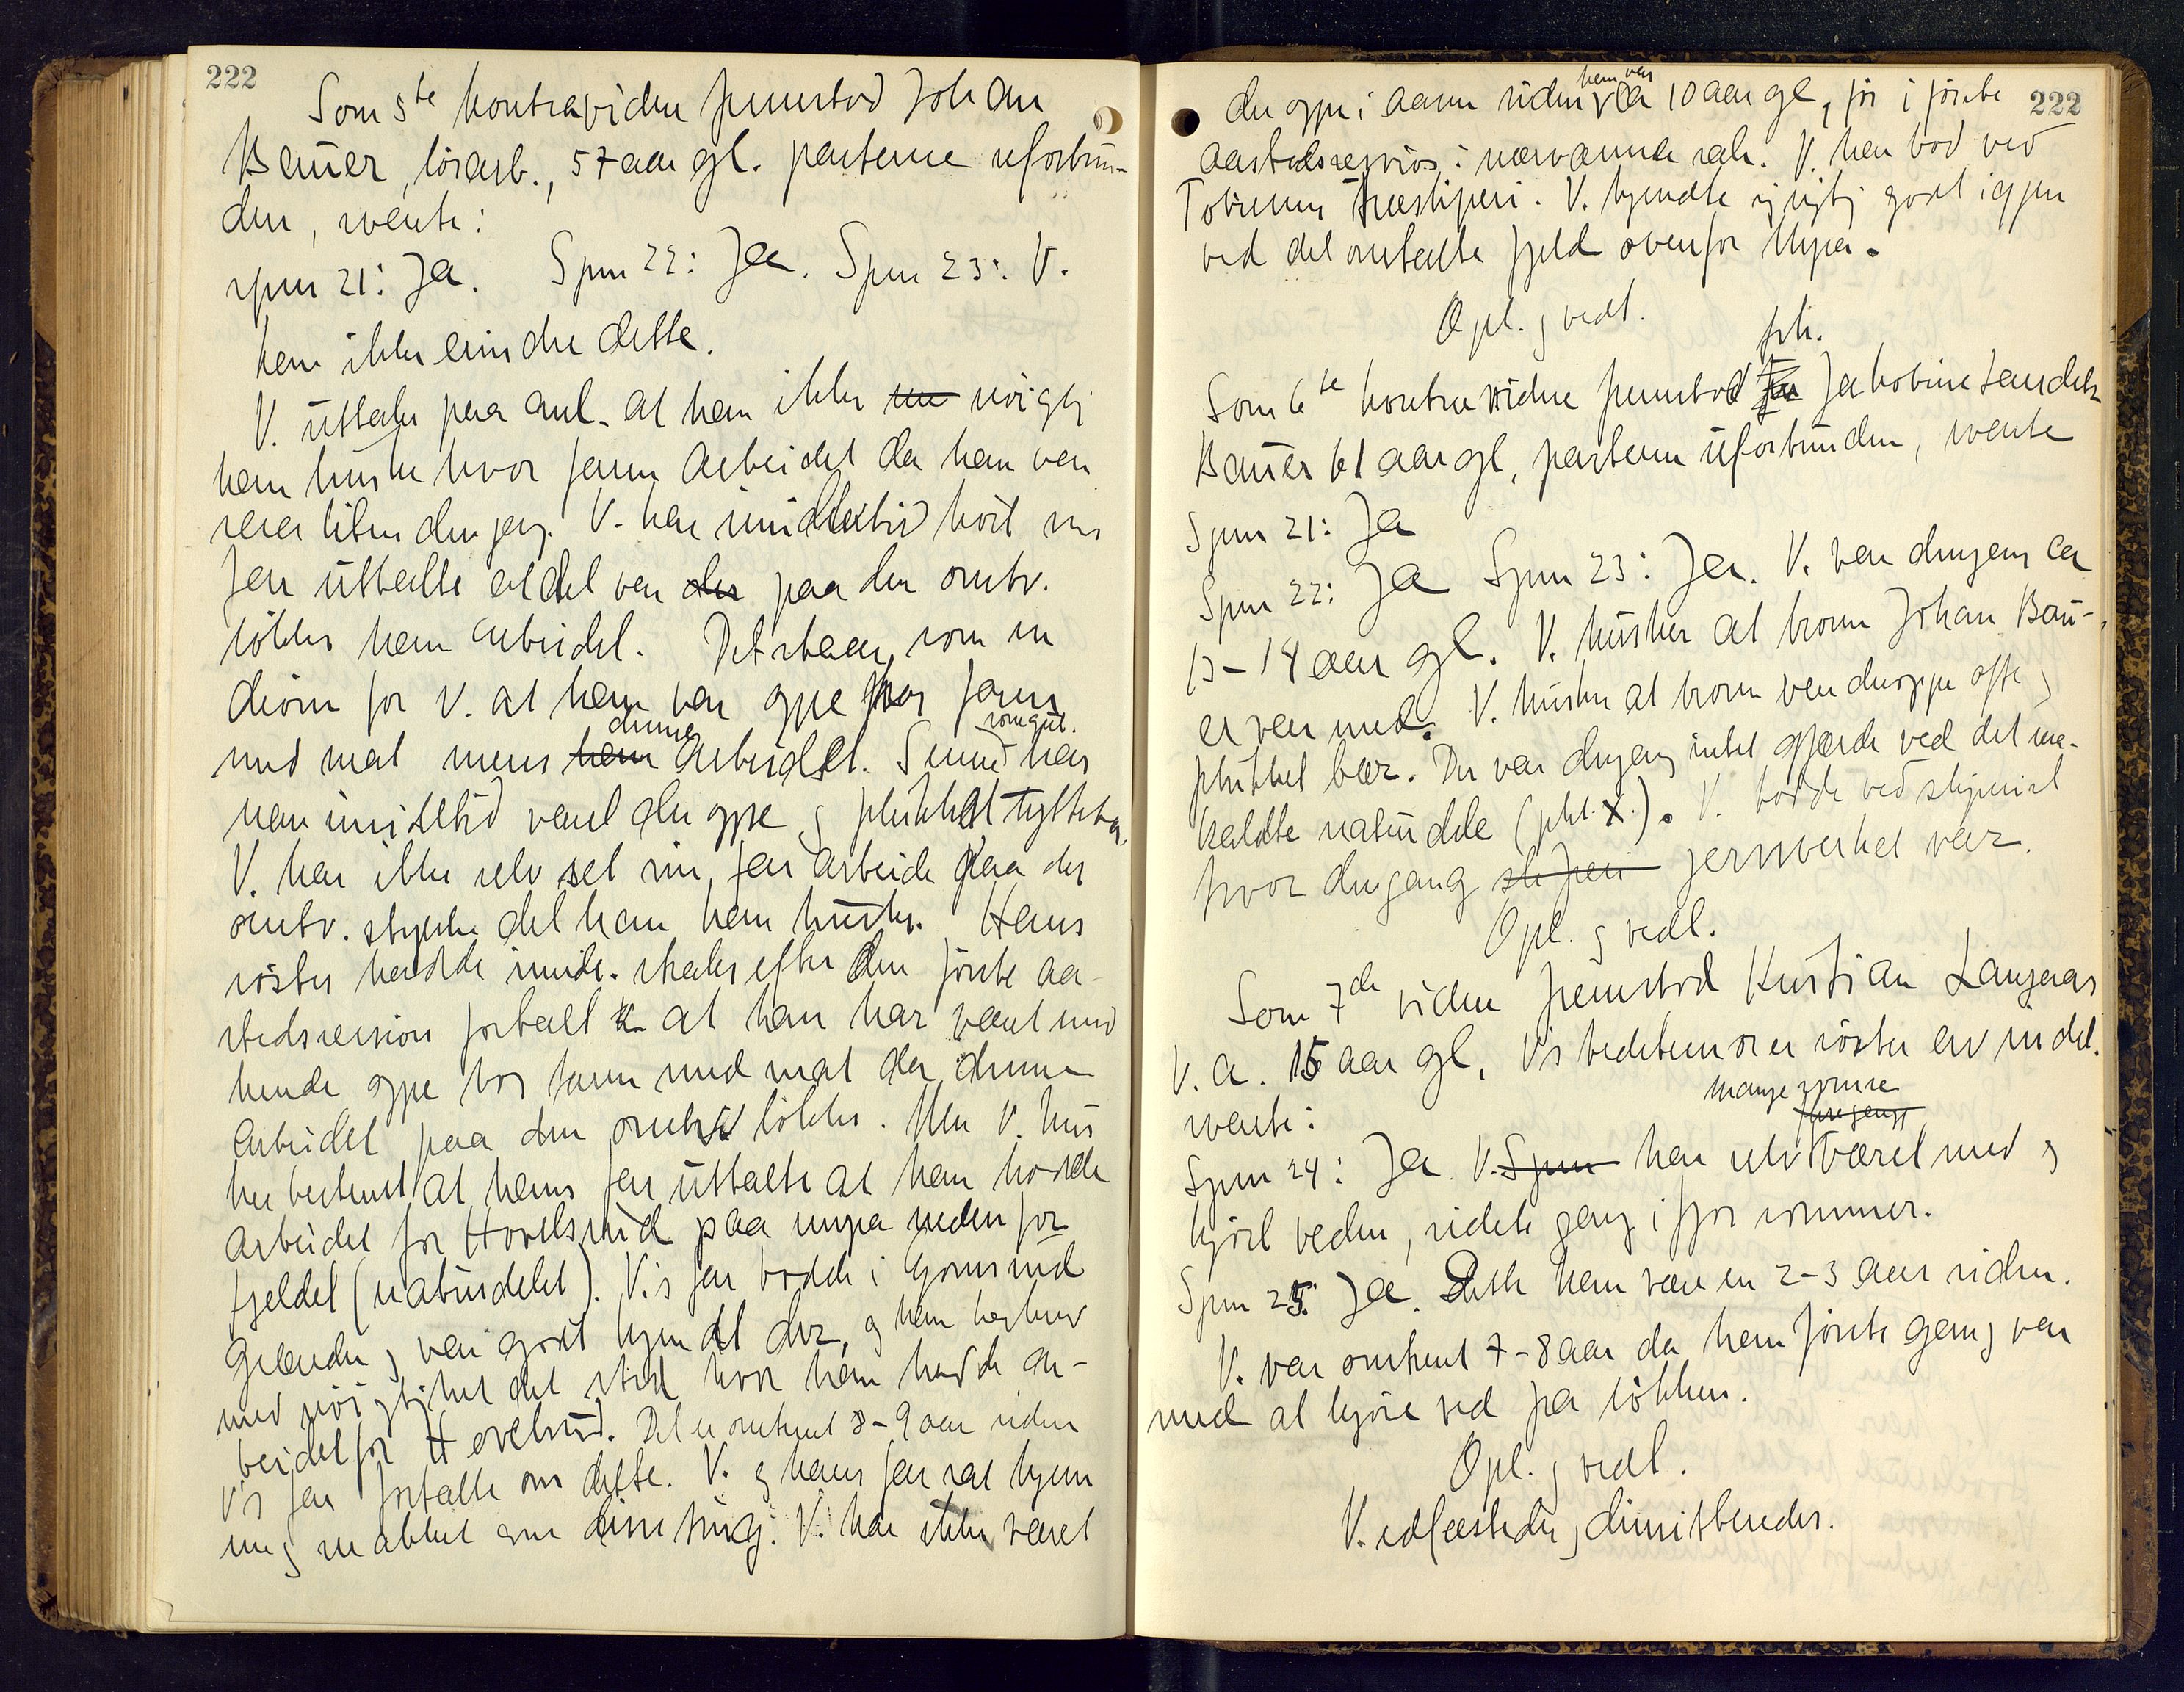 222
Som 5te kontravidne fremstod Johan
Bauer, løsarb., 57 aar gl. parterne uforbun-
den, svarte:
spm 21: Ja. Spm 22: Ja. Spm 23: V.
kan ikke erindre dette.
V. uttaler paa anl. at han ikke nøigtig
kan huske hvor faren arbeidet da han var
svær liten dengang. V. har imidlertid hørt sin
far uttalte at det var der paa den omtv.
løkke han arbeidet. Det staar, som en
drøm for V. at han var oppe hos faren
denne som gut.
med mat mens han arbeidet. Senere har
han imidlertid været der oppe og plukket tyttebær.
V. har ikke selv set sin far arbeide paa det
omtv. stykke det han kan huske. Hans
søster hadde imidl. straks efter den første aa-
stedssesjon fortalt at han har været med
hende oppe hos faren med mat da denne
arbeidet paa den omtv. løkke. Men V. hus
ker bestemt at hans far uttalte at han hadde
arbeidet for Hovelsrud paa mypa nedenfor
fjeldet (naturdelet). V.'s far bodde i Gomsrud
grænden og var godt kjendt der, og han beskrev
med nøigtighet det sted hvor han hadde ar-
beidet for Hovelsrud. Det er omtrent 8-9 aar siden
V's far fortalte om dette. V. og hans far sat hjem
me og snakket om disse ting. V. har ikke været
222
han var
der oppe i aasen siden ca 10 aar gl, før i første
aastedssesjon i nærværende sak. V. har bod ved
træsliperi. V. kjendte sig rigtig godt igjen
ved det omtalte fjeld ovenfor Mypa.
Opl. og vedt.
frk.
Som 6te kontravidne fremstod Jakobine
Bauer 61 aar gl, parterne uforbunden, svarte
Spm 21: Ja
Spm 22: Ja Spm 23: Ja. V. var dengang ca
13-14 aar gl. V. husker at broren Johan Bau-
er var med. V. husker at broren var deroppe ofte og
plukket bær. Der var dengang intet gjærde ved det saa-
kaldte naturdele (pkt. X). V. bodde ved sliperiet
hvor dengang sliperi jernverket var.
Opl. og vedt.
Som 7de vidne fremstod Kristian Langaas
V. a. 15 aar gl, V's bedstemor er søster av indst.
svarte:
mange somre
flere gange
Spm 24: Ja. V. Spm har selv været med og
kjørt veden, sidste gang i fjor sommer.
Spm 25: Ja. Dette kan være en 2-3 aar siden.
V. var omtrent 7-8 aar da han første gang var
med at kjøre ved fra løkken.
Opl. og vedt.
V. edfæstedes og dimitteredes.